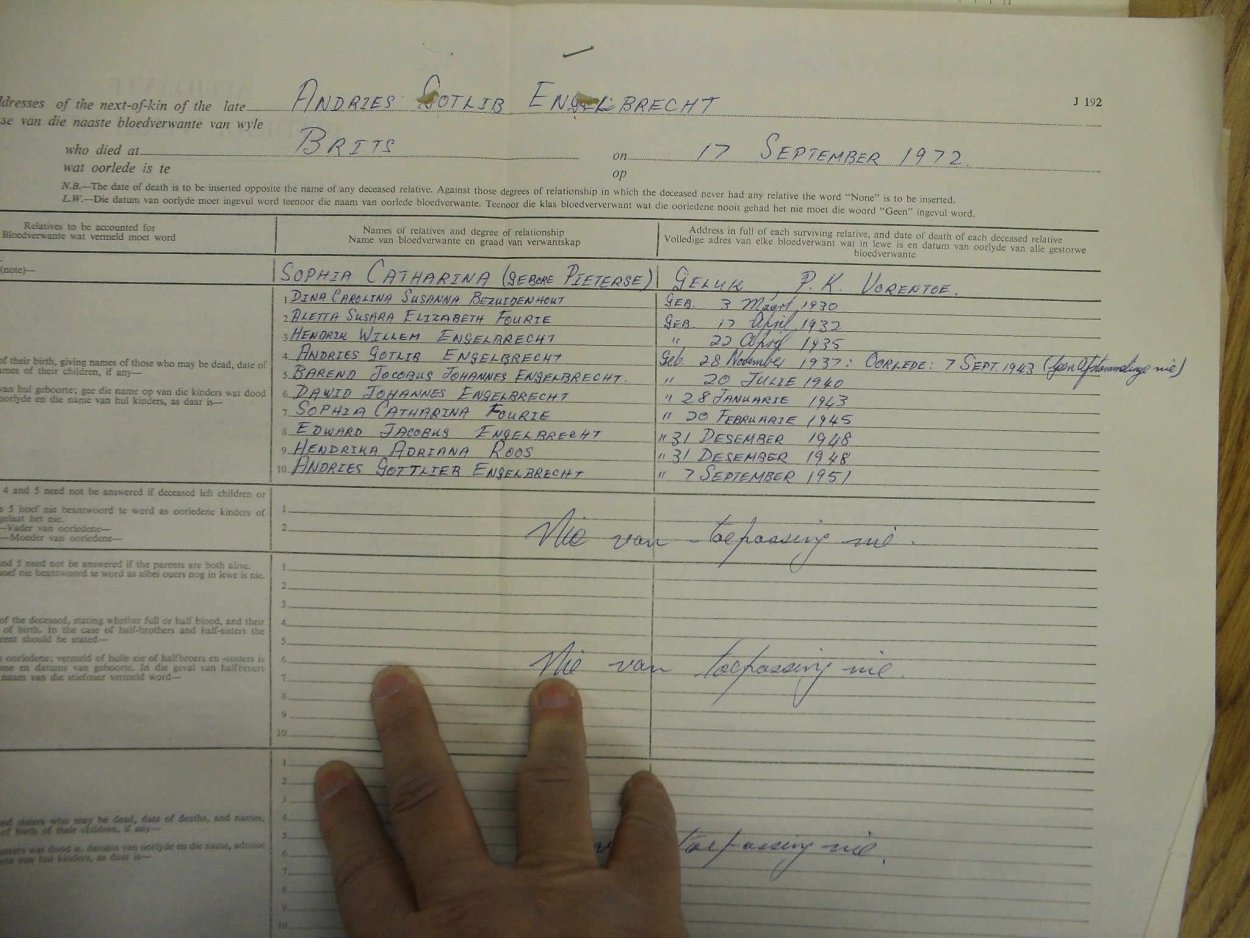 J 192
ddresses of the next-of-kin of the late ANDRIES GOTLIB ENGELBRECHT
se van die naaste bloedverwante van wyle
who died at BRITS on 17 SEPTEMBER 1972.
wat oorlede is te op
N.B.—The date of death is to be inserted opposite the name of any deceased relative. Against those degrees of relationship in which the deceased never had any relative the word "None" is to be inserted.
L.W.—Die datum van oorlyde moet ingevul word teenoor die naam van oorlede bloedverwante. Teenoor die klas bloedververwant wat die oorledene nooit gehad het nie moet die woord "Geen" ingevul word.
Relatives to be accounted for
Bloedverwante wat vermeld moet word
Names of relatives and degree of relationship
Name van bloedverwante en graad van verwantskap
Address in full of each surviving relative, and date of death of each deceased relative
Volledige adres van elke bloedverwant wat in lewe is en datum van oorlyde van alle gestorwe
bloedverwante
(note)— SOPHIA CATHARINA (GEBORE PIETERSE) GELUK, P.K. VORENTOE.
1 DINA CAROLINA SUSANNA BEZUIDENHOUT GEB. 3 Maart 1930
2 ALETTA SUSARA ELIZABETH FOURIE GEB. 17 April 1932
3 HENDRIK WILLEM ENGELBRECHT " 22 April 1935
4 ANDRIES GOTLIB ENGELBRECHT Geb. 28 November 1937: OORLEDE: 7 SEPT. 1943 (Geen Afstammelinge nie)
5 BAREND JOCOBUS JOHANNES ENGELBRECHT. " 20 JULIE 1940
6 DAWID JOHANNES ENGELBRECHT " 28 JANUARIE 1943
7 SOPHIA CATHARINA FOURIE " 20 FEBRUARIE 1945
8 EDWARD JACOBUS ENGELBRECHT " 31 DESEMBER 1948
9 HENDRIKA ADRIANA ROOS " 31 DESEMBER 1948
10 ANDRIES GOTTLIEB ENGELBRECHT " 7 SEPTEMBER 1951
of their birth, giving names of those who may be dead, date of
ames of their children, if any—
van hul geboorte; gee die name op van die kinders wat dood
oorlyde en die name van hul kinders, as daar is—
4 and 5 need not be answered if deceased left children or
5 hoef nie beantwoord te word as oorledene kinders of
gelaat het nie.
—Vader van oorledene—
—Moeder van oorledene—
1
2
Nie van toepassing nie.
nd 5 need not be answered if the parents are both alive.
hoef nie beantwoord te word as albei ouers nog in lewe is nie.
of the deceased, stating whether full or half blood, and their
of birth. In the case of half-brothers and half-sisters the
ent should be stated—
oorledene; vermeld of hulle eie of halfbroers en -susters is
sse en datums van geboorte. In die geval van halfbroers
naam van die stiefouer vermeld word—
1
2
3
4
5
6
7
8
9
10
Nie van toepassing nie.
nd sisters who may be dead, date of deaths, and names,
of birth of their children, if any—
susters wat dood is, datums van oorlyde en die name, adresse
van hul kinders, as daar is—
1
2
3
4
5
6
7
8
9
10
toepassing nie.